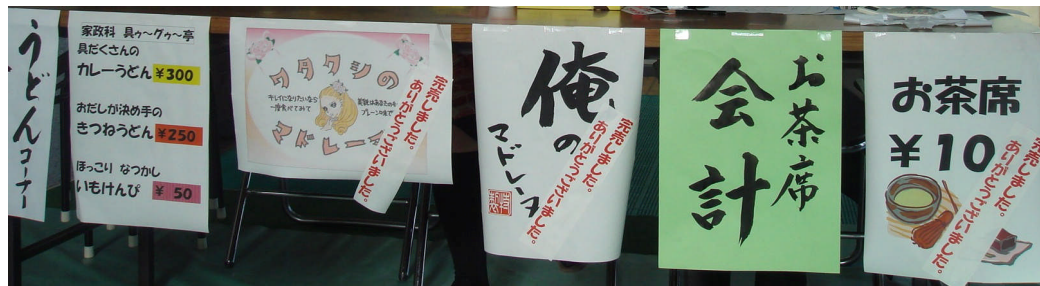 うどんコーナー
家政科 具ゥ〜グゥ〜亭
具だくさんの
カレーうどん ¥300
おだしが決め手の
きつねうどん ¥250
ほっこり なつかし
いもけんぴ ¥50
ワタクシの
キレイになりたいなら
一度食べてみて
マドレー
完売しました。
ありがとうございました。
俺の
マドレーヌ
完売しました。
ありがとうございました。
お茶席
会計
お茶席
¥10
完売しました。
ありがとうございました。